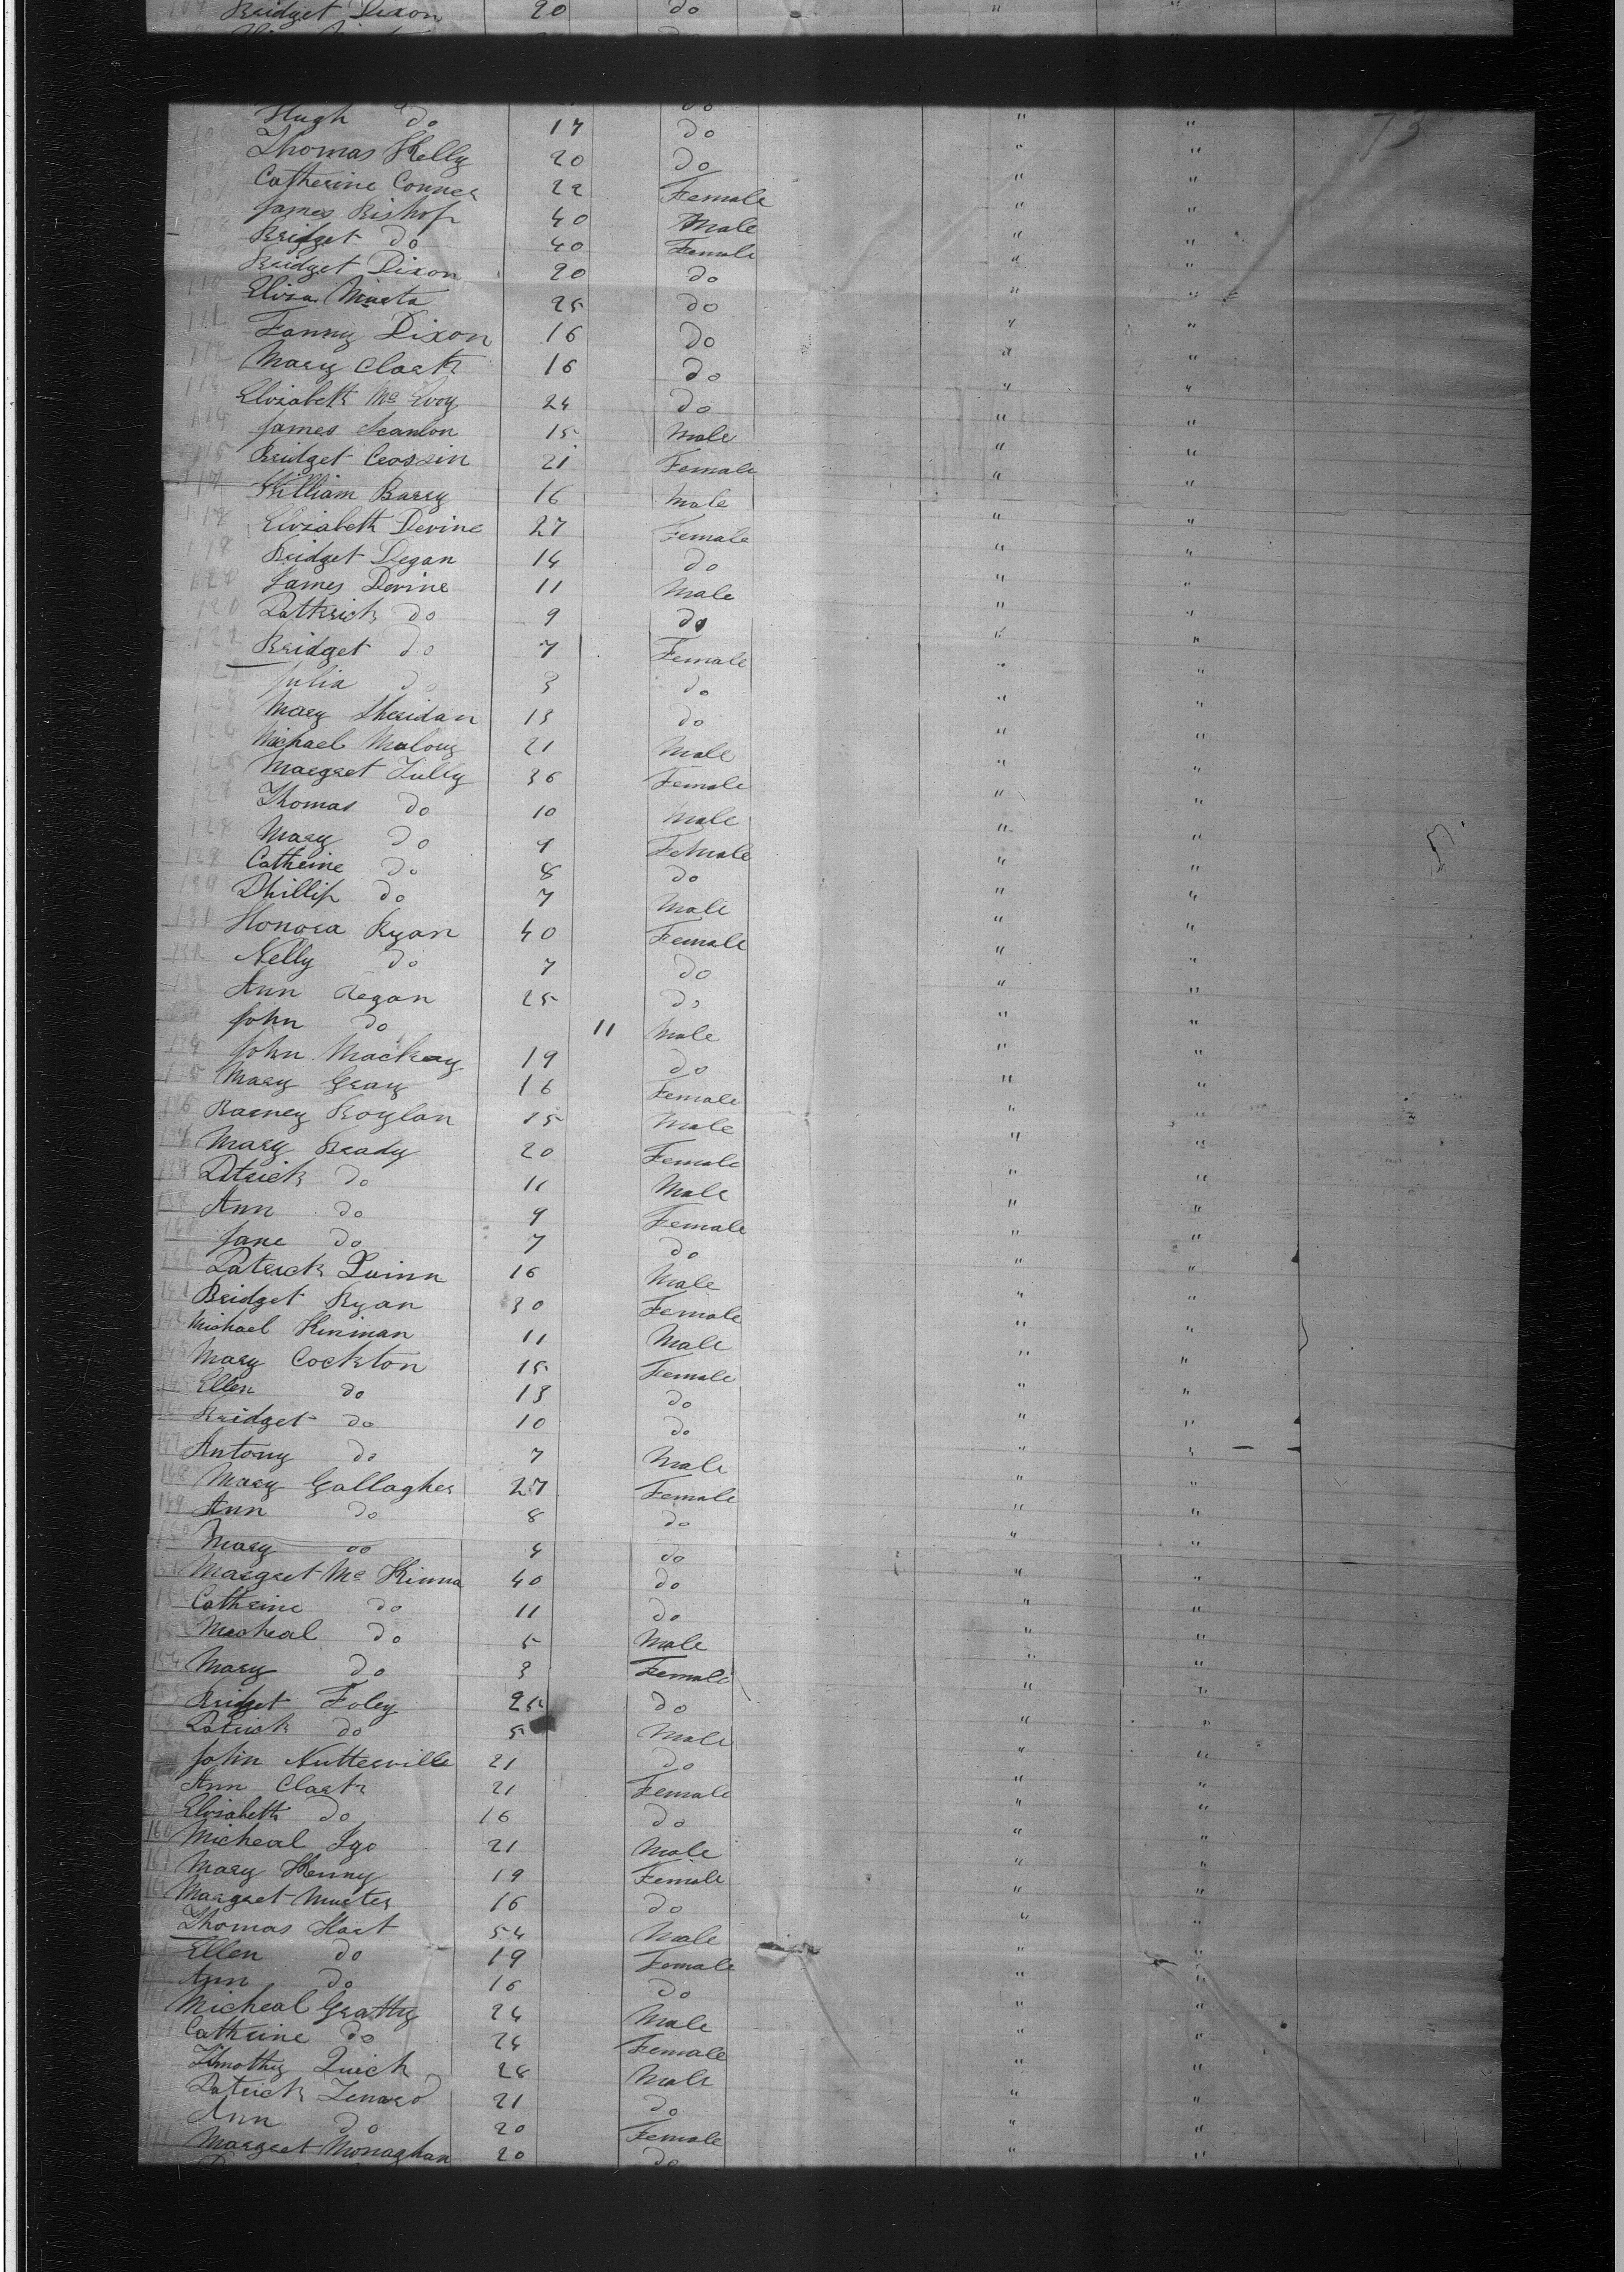 Bridget Dixon 20 do " "
73
Hugh do 17 do " "
Thomas Kelly 20 do " "
Catherine Conner 22 Female " "
James Bishop 40 Male " "
Bridget do 40 Female " "
Bridget Dixon 20 do " "
110 Eliza 25 do " "
111 Fanny Dixon 16 do " "
112 Mary Clark 16 do " "
Elizabeth Mc Evoy 24 do " "
114 James Scanlon 15 Male " "
115 Bridget Crossin 21 Female " "
William Barry 16 Male " "
Elizabeth Devine 27 Female " "
Bridget Degan 14 do " "
James Devine 11 Male " "
120 Pattrick do 9 do " "
Bridget do 7 Female " "
Julia do 3 do " "
123 Mary Sheridan 13 do " "
124 Michael Malony 21 Male " "
Margret Tully 36 Female " "
Thomas do 10 Male " "
128 Mary do 9 Female " "
129 Catherine do 8 do " "
Phillip do 7 Male " "
Honora Ryan 40 Female " "
Nelly do 7 do " "
Ann Regan 25 do " "
John do 11 Male " "
John Mackey 19 do " "
135 Mary Gray 16 Female " "
Barney Boylan 15 Male " "
Mary Brady 20 Female " "
Patrick do 11 Male " "
Ann do 9 Female " "
Jane do 7 do " "
Patrick Quinn 16 Male " "
Bridget Ryan 30 Female " "
Michael Kinman 11 Male " "
Mary Cockton 15 Female " "
Ellen do 13 do " "
Bridget do 10 do " "
147 Antony do 7 Male " "
148 Mary Gallagher 27 Female " "
149 Ann do 8 do " "
150 Mary do 4 do " "
151 Margret Mc Kinna 40 do " "
Catherine do 11 do " "
153 Micheal do 5 Male " "
154 Mary do 3 Female " "
Bridget Foley 25 do " "
Patrick do 5 Male " "
John Nutterville 21 do " "
Ann Clark 21 Female " "
Elizabeth do 16 do " "
160 Micheal Igo 21 Male " "
161 Mary Kenny 19 Female " "
Margret Murter 16 do " "
Thomas Hart 54 Male " "
Ellen do 19 Female " "
Ann do 16 do " "
Micheal Gratty 24 Male " "
Catherine do 24 Female " "
Timothy Quick 28 Male " "
Patrick Lenard 21 do " "
Ann do 20 Female " "
Margret Monaghan 20 do " "